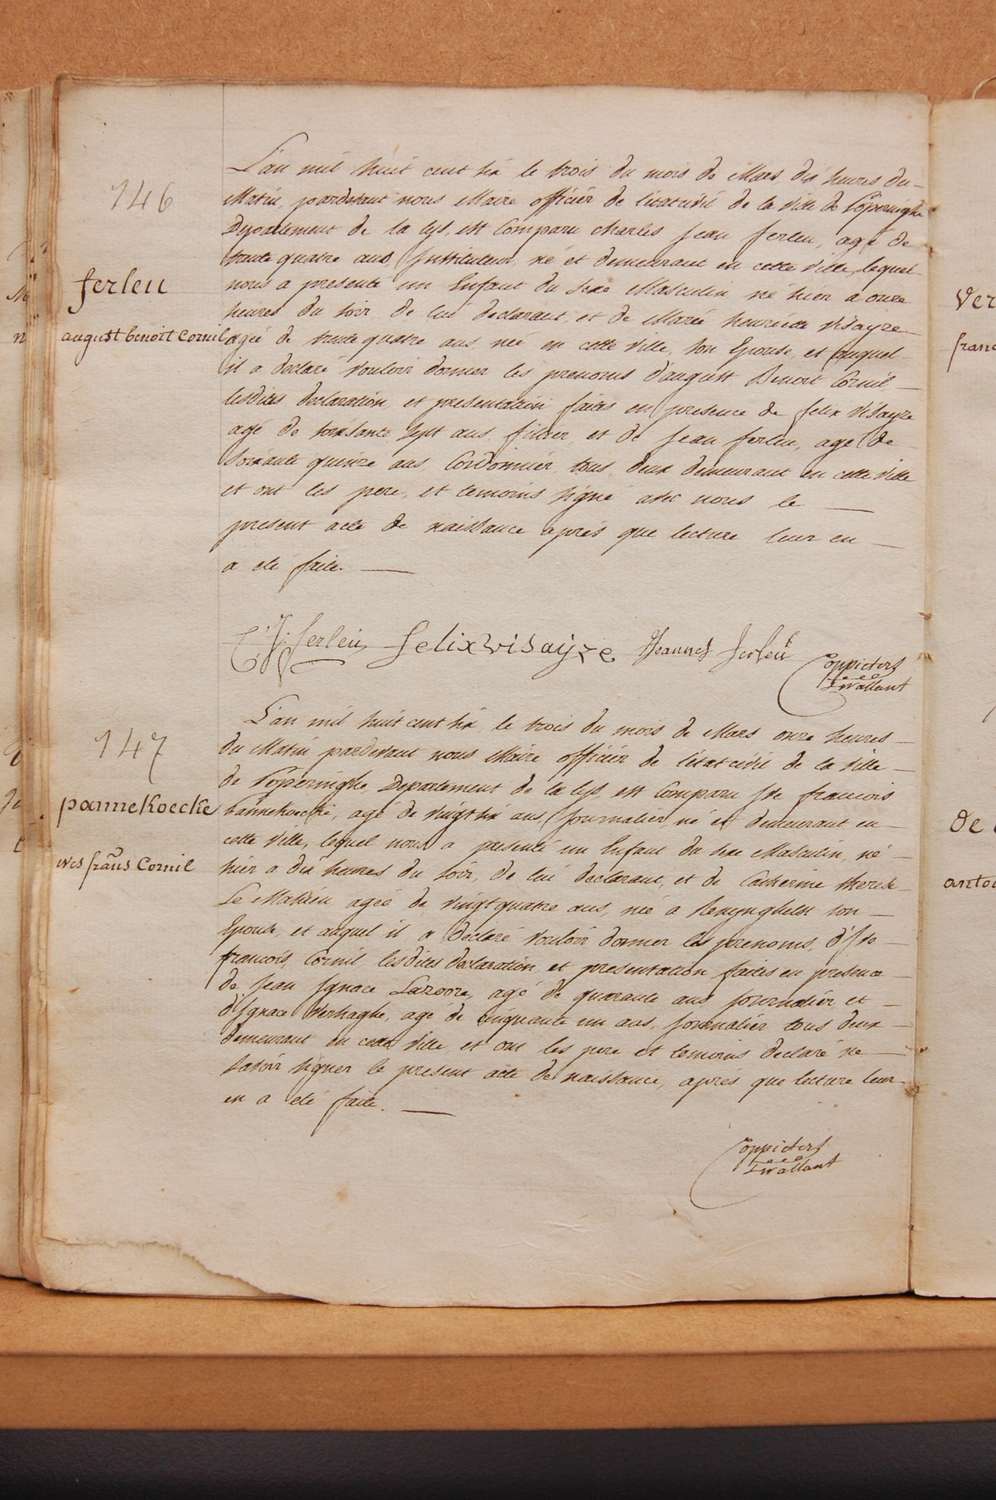 146
ferleu
august benoit Cornil
L'an mil huit cent six le trois du mois de Mars dix heures du
Matin, pardevant nous Maire officier de l'etat civil de la ville de Poperinghe
Departement de la Lys, est Comparu charles jean ferleu, agé de
trente quatre ans, Instituteur, né et demeurant en cette ville, lequel
nous a presenté un Enfant du sexe Masculin né hier a onze
heures du soir, de lui declarant, et de Marie
agée de trente quatre ans née en cette ville, son Epouse, et auquel
il a declaré vouloir donner les prenoms d'august Benoit Cornil
lesdites declaration et presentation faites en presence de felix visayze
agé de soixante sept ans, et de jean ferleu, agé de
soixante quinze ans, Cordonnier tous deux demeurant en cette ville
et ont les pere, et temoins signé avec nous le
present acte de naissance après que lecture leur en
a eté faite.
ferleu felix visayze Joannes ferleu
Coppieters
Stevallant
147
pannekoecke
ives frans Cornil
L'an mil huit cent six, le trois du mois de Mars onze heures
du Matin pardevant nous Maire officier de l'etat civil de la ville
de Poperinghe Departement de la Lys est Comparu francois
Pannekoecke, agé de vingt six ans, Journalier né et demeurant en
cette ville, lequel nous a presenté un Enfant du sexe Masculin, né
hier a dix heures du soir, de lui declarant, et de Catherine therese
Le Mahieu agée de vingt quatre ans, née a Renynghelst son
Epouse, et auquel il a declaré vouloir donner les prenoms, d'Ivo
francois, Cornil lesdites declaration et presentation faites en presence
de Jean Ignace agé de quarante ans journalier et
d'Ignace Verhaghe, agé de cinquante un ans, journalier tous deux
demeurant en cette ville et ont les pere et temoins declaré ne
savoir signer le present acte de naissance, apres que lecture leur
en a eté faite.
Coppieters
Stevallant
ver
franc
de
antoi